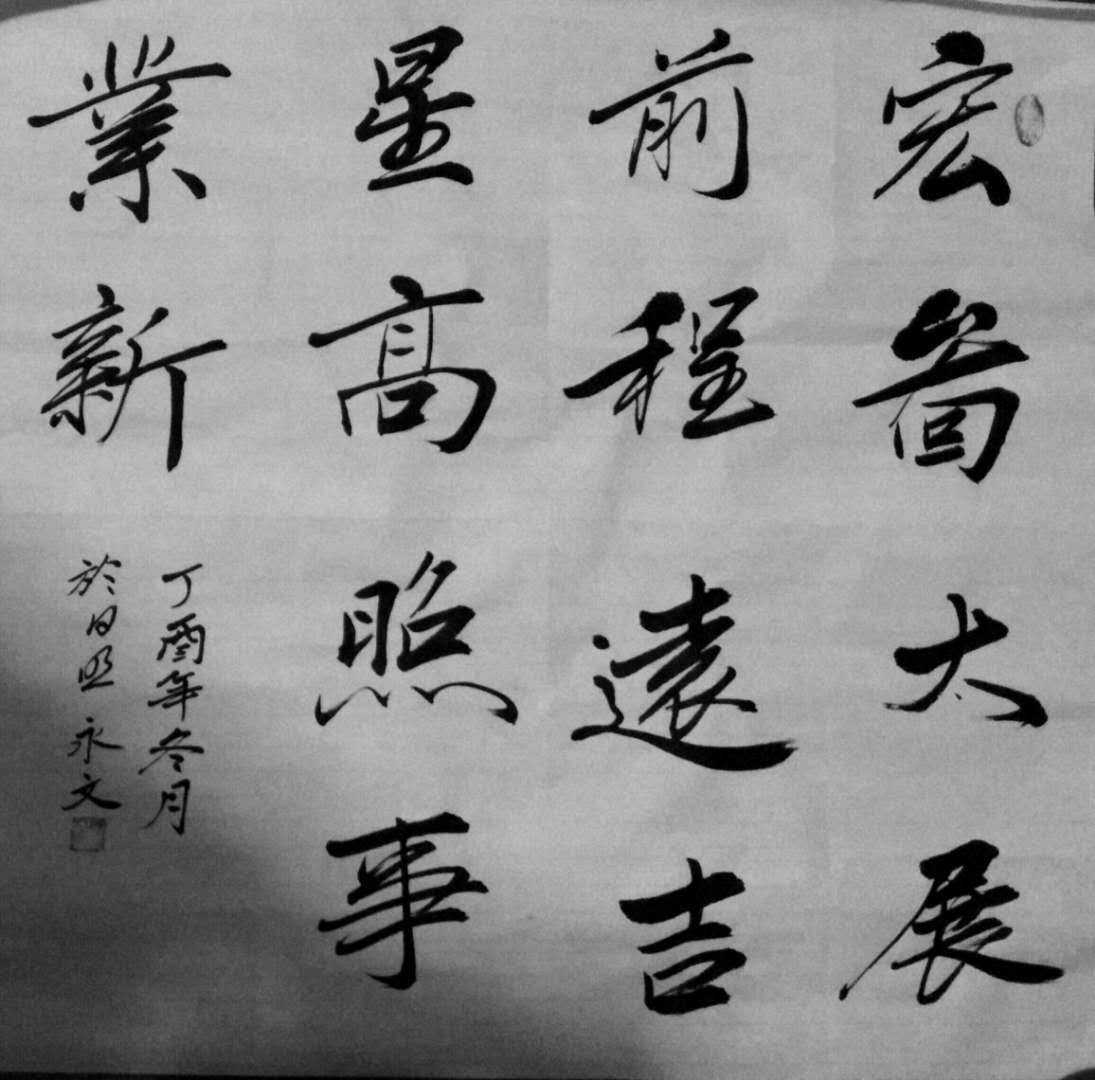 宏啚太展
前程遠吉
星高照事
業新
丁酉年冬月
於日照 永文